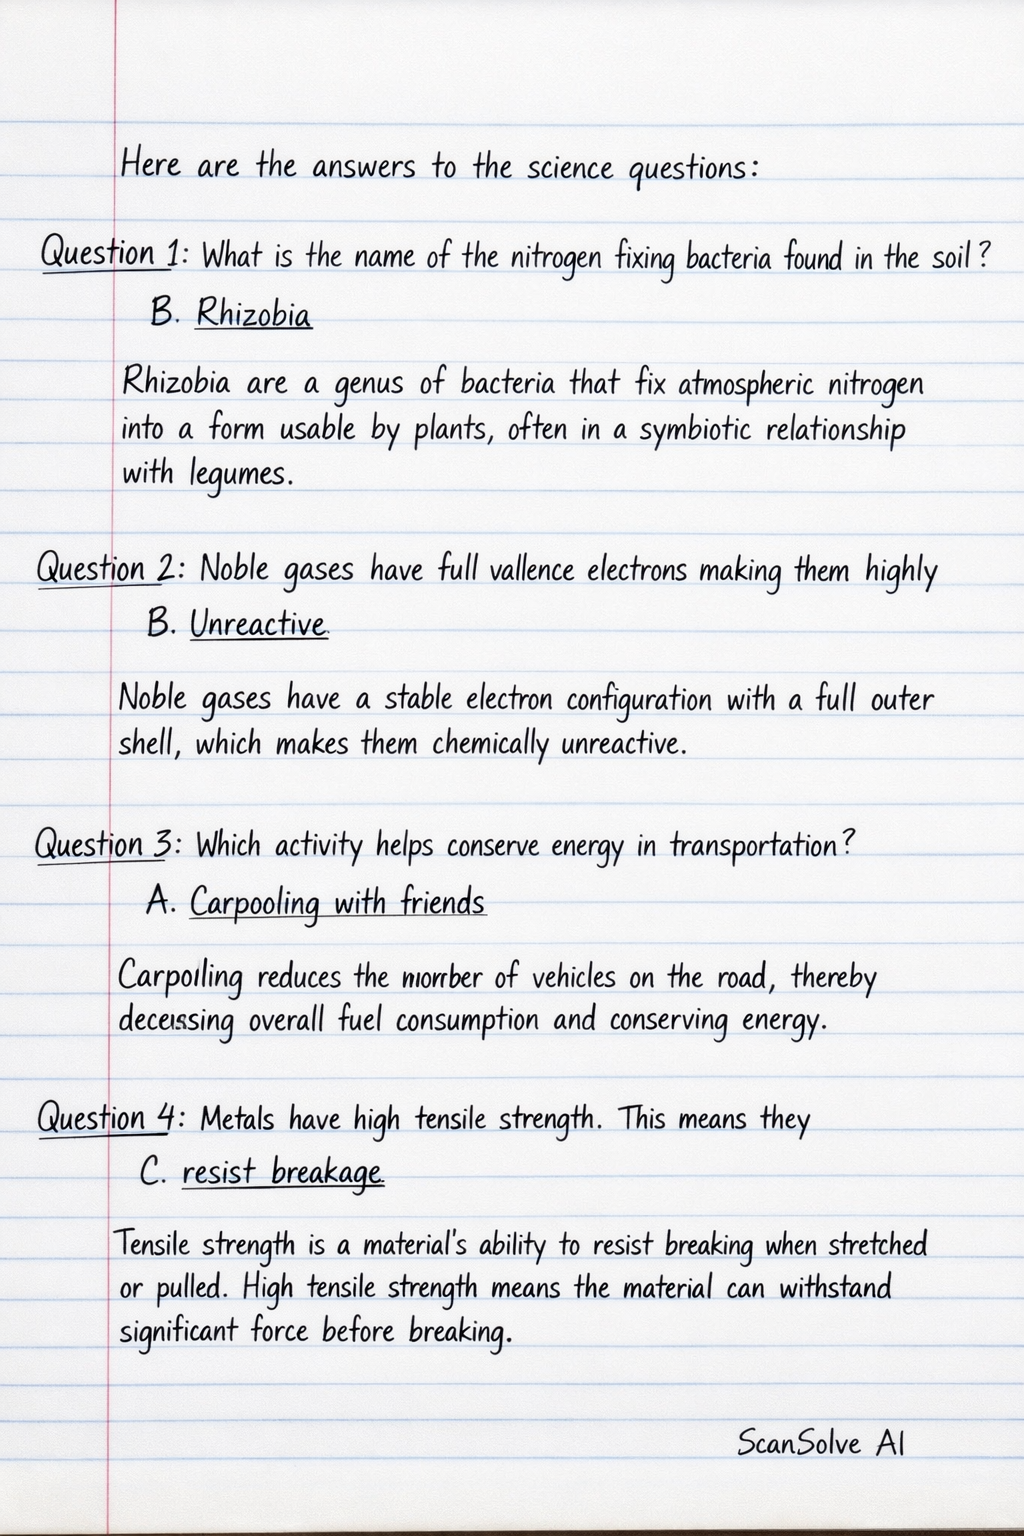 Here are the answers to the science questions:
Question 1: What is the name of the nitrogen fixing bacteria found in the soil?
B. Rhizobia
Rhizobia are a genus of bacteria that fix atmospheric nitrogen
into a form usable by plants, often in a symbiotic relationship
with legumes.
Question 2: Noble gases have full vallence electrons making them highly
B. Unreactive.
Noble gases have a stable electron configuration with a full outer
shell, which makes them chemically unreactive.
Question 3: Which activity helps conserve energy in transportation?
A. Carpooling with friends
reduces the of vehicles on the road, thereby
overall fuel consumption and conserving energy.
Question 4: Metals have high tensile strength. This means they
C. resist breakage.
Tensile strength is a material's ability to resist breaking when stretched
or pulled. High tensile strength means the material can withstand
significant force before breaking.
ScanSolve AI